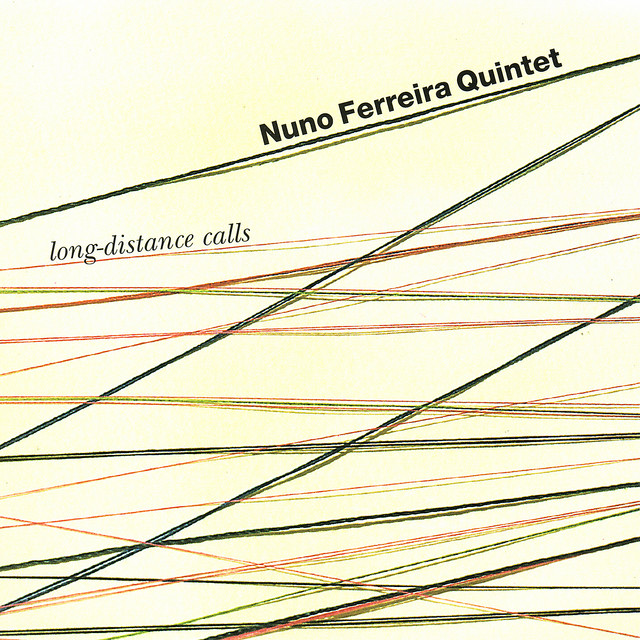 Nuno Ferreira Quintet
long-distance calls